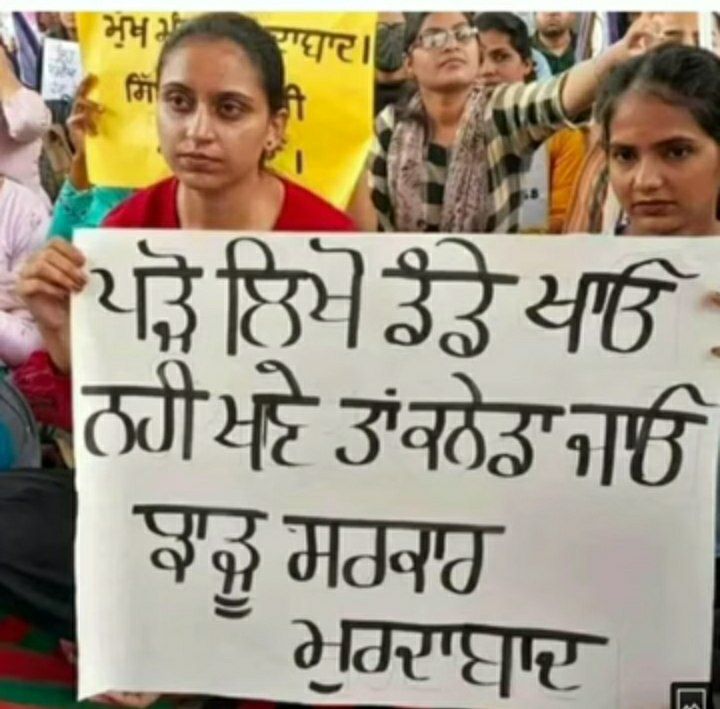 ਮੁੱਖ
ਪੜੋ ਲਿਖੋ ਡੰਡੇ ਖਾਓ
ਨਹੀ ਖਾਣੇ ਤਾਂ ਕਨੇਡਾ ਜਾਓ
ਝਾੜੂ ਸਰਕਾਰ
ਮੁਰਦਾਬਾਦ